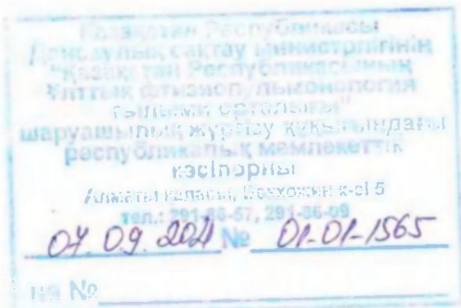 Қазақстан Республикасы
Денсаулық сақтау министрлігінің
"Қазақстан Республикасының
Ұлттық фтизиопульмонология
ғылыми орталығы"
шаруашылық жүргізу құқығындағы
республикалық мемлекеттік
кәсіпорны
Алматы қаласы, Бекхожин к-сі 5
тел.: 291-86-57, 291-86-09
07.09.2021 № 01-01-1565
на №